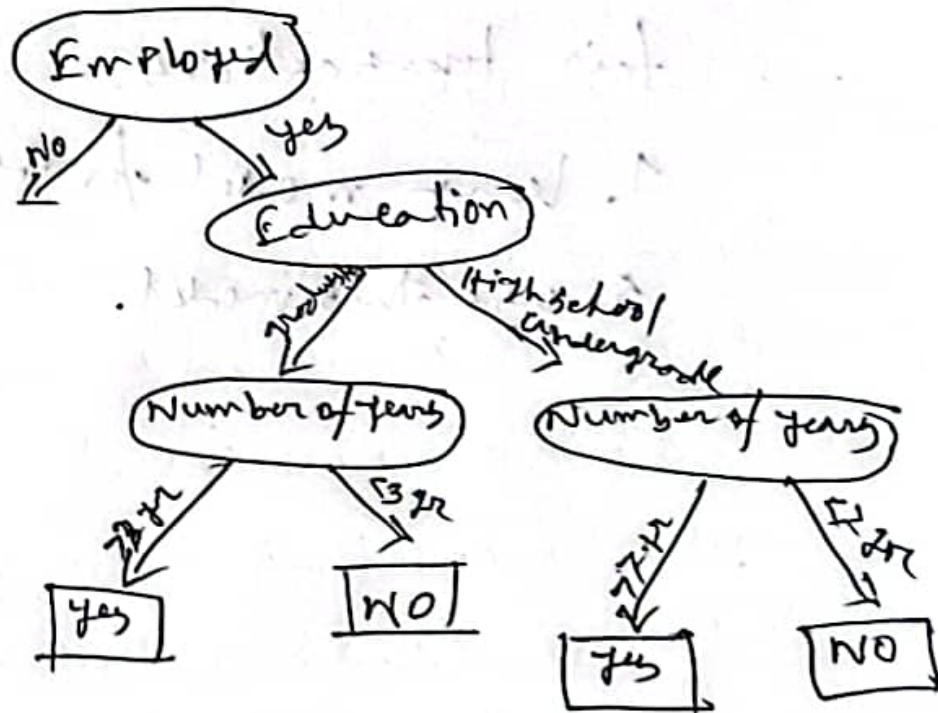 Employed
No
yes
Education
graduate
High school/
undergrade
Number of years
Number of years
<3 yr
yes
NO
yes
NO